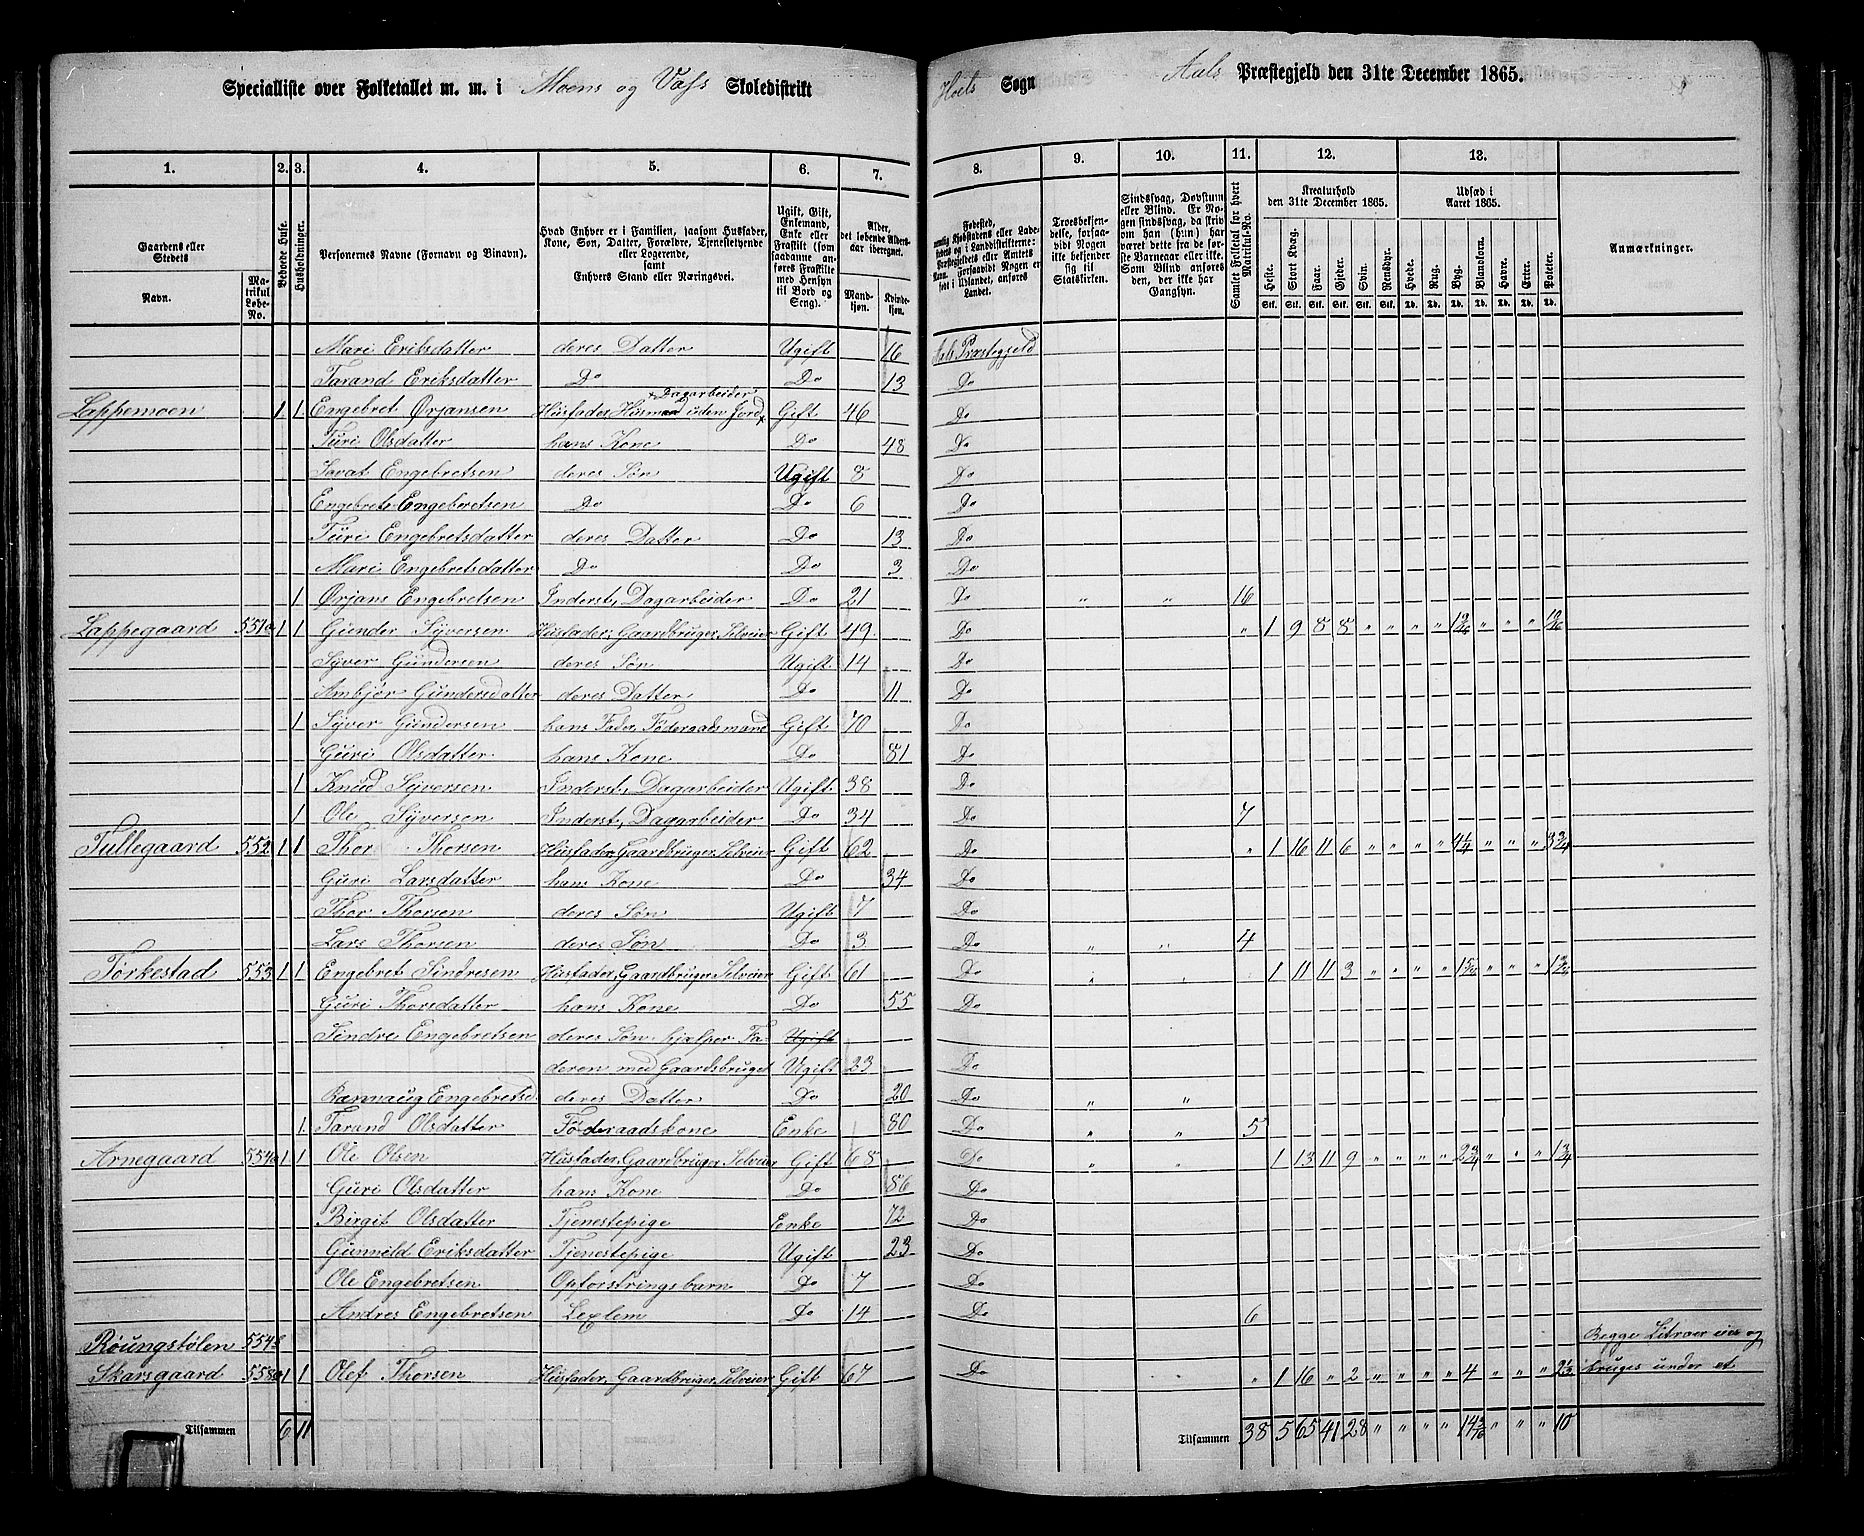 Specialliste over Folketallet m. m. i Moens og Vass Skoledistrikt
Hols Sogn Aals Præstegjeld den 31te December 1865.
1. 2. 3. 4. 5. 6. 7. 8. 9. 10. 11. 12. 13.
Gaardens eller Stedets
Navn.
Matrikul Løbe-No.
Beboede Huse.
Husholdninger.
Personernes Navne (Fornavn og Binavn).
Hvad Enhver er i Familien, saasom Husfader, Kone, Søn, Datter, Forældre, Tjenestetyende eller Logerende, samt Enhvers Stand eller Næringsvei.
Ugift, Gift, Enkemand, Enke eller Fraskilt (som saadanne anføres Fraskilte med Hensyn til Bord og Seng).
Alder, det løbende Aldersaar iberegnet.
Mandkjøn. Kvindekjøn.
Troesbekjendelse, forsaavidt Nogen ikke bekjender sig til Statskirken.
Sindssvag, Døvstum eller Blind. Er Nogen sindssvag, da skriv om han (hun) har været dette fra de første Barneaar eller ikke. Som Blind anføres den, der ikke har Gangsyn.
Samlet Folketal for hvert Matrikul-No.
Kreaturhold den 31te December 1865.
Heste. Stort Kvæg. Faar. Gjeder. Svin. Rensdyr.
Udsæd i Aaret 1865.
Hvede. Rug. Byg. Blandkorn. Havre. Erter. Poteter.
Anmærkninger.
Mari Eriksdatter deres Datter Ugift 16 Aals Præstegjeld
Tarand Eriksdatter Do Do 13 Do
Lappemoen 1 1 Engebret Ørjansen Husfader, Husmand uden Jord, Dagarbeider Gift 46 Do
Turi Olsdatter hans Kone Do 48 Do
Savat Engebretsen deres Søn Ugift 8 Do
Engebret Engebretsen Do Do 6 Do
Turi Engebretsdatter deres Datter Do 13 Do
Mari Engebretsdatter Do Do 3 Do
1 Ørjans Engebretsen Inderst, Dagarbeider Do 21 Do " " 16
Lappegaard 551a 1 1 Gunder Syversen Husfader, Gaardbruger, Selveier Gift 49 Do " 1 9 8 8 " " " "
Syver Gundersen deres Søn Ugift 14 Do
Ambjør Gundersdatter deres Datter Do 11 Do
1 Syver Gundersen hans Fader, Föderaadsmand Gift 70 Do
Guri Olsdatter hans Kone Do 81 Do
1 Knud Syversen Inderst, Dagarbeider Ugift 38 Do
1 Ole Syversen Inderst, Dagarbeider Do 34 Do 7
Tullegaard 552 1 1 Thor Thorsen Husfader, Gaardbruger, Selveier Gift 62 Do " 1 16 11 6 " " " " 4 1/4 " " " 3 3/4
Guri Larsdatter hans Kone Do 34 Do
Thor Thorsen deres Søn Ugift 7 Do
Lars Thorsen deres Søn Do 3 Do " " 4
Torkestad 553 1 1 Engebret Sindresen Husfader, Gaardbruger, Selveier Gift 61 Do " " 1 11 11 3 " " " "
Guri Thorsdatter hans Kone Do 55 Do
Sindre Engebretsen deres Søn, hjælper Fa- Ugift
deren med Gaardsbruget Ugift 23 Do
Rannaug Engebretsd. deres Datter Do 20 Do " "
1. Tarand Olsdatter Föderaadskone Enke 80 Do " " 5
Arnegaard 554a 1 1 Ole Olsen Husfader, Gaardbruger, Selveier Gift 68 Do " " 1 13 11 9 " " " " 2 3/4 " " " 1 3/4
Guri Olsdatter hans Kone Do 86 Do
Birgit Olsdatter Tjenestepige Enke 72 Do
Gunnild Eriksdatter Tjenestepige Ugift 23 Do
Ole Engebretsen Opfostringsbarn Do 7 Do
Andres Engebretsen Lexlem Do 14 Do 6
Röungstölen 554b Begge Litraer eies og
Skarsgaard 558a 1 1 Olef Thorsen Husfader, Gaardbruger, Selveier Gift 67 Do " 1 16 " 2 " " " " 4 " " " 2 1/3 bruges under et
Tilsammen 6 11
Tilsammen 38 5 65 41 28 " " " " " " " 10